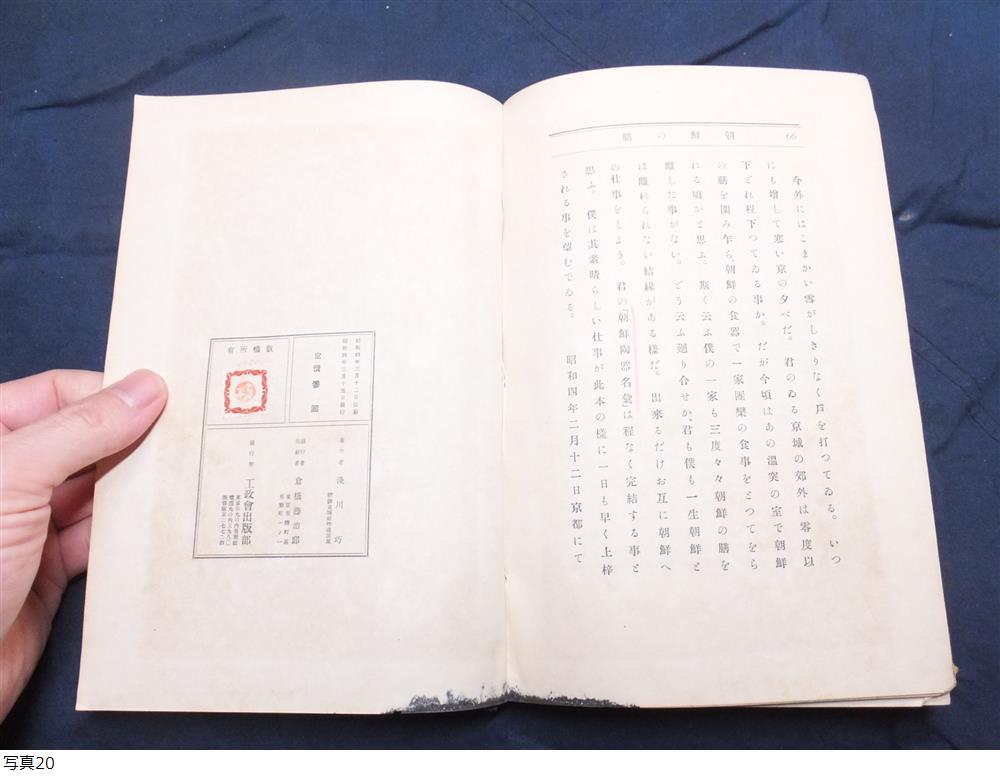 朝鮮の膳
66
今外にはこまかい雪がしきりなく戸を打つてゐる。いつ
にも增して寒い京の夕べだ。君のゐる京城の郊外は零度以
下どれ程下つてゐる事か。だが今頃はあの溫突の室で朝鮮
の膳を圍み乍ら、朝鮮の食器で一家團欒の食事をとつてをら
れる頃かと思ふ。斯く云ふ僕の一家も三度々々朝鮮の膳を
離した事がない。どう云ふ廻り合せか、君も僕も一生朝鮮と
は離れられない結緣がある樣だ。出來るだけお互に朝鮮へ
の仕事をしよう。君の「朝鮮陶器名彙」は程なく完結する事と
思ふ。僕は其素晴らしい仕事が此本の樣に一日も早く上梓
される事を望むでゐる。
昭和四年二月十二日京都にて
版權所有
昭和四年三月十二日印刷
昭和四年三月十五日發行
定價 圓
著作者 淺川巧
發行者
印刷者 倉橋藤治郎
發行所 工政會出版部